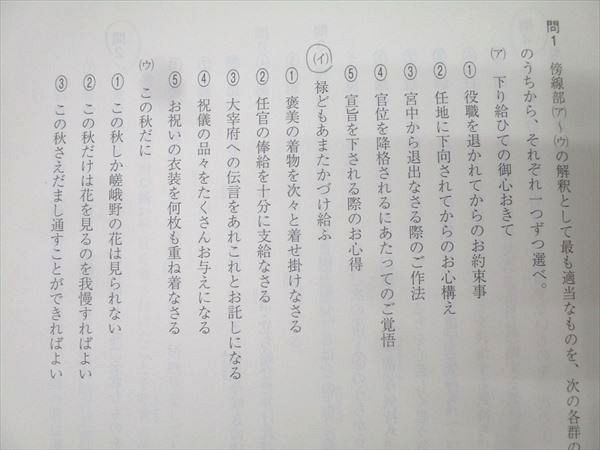 問1　傍線部㈦〜㈨の解釈として最も適当なものを、次の各群の
のうちから、それぞれ一つずつ選べ。
㈦　下り給ひての御心おきて
①　役職を退かれてからのお約束事
②　任地に下向されてからのお心構え
③　宮中から退出なさる際のご作法
④　官位を降格されるにあたってのご覚悟
⑤　宣旨を下される際のお心得
(イ)　禄どもあまたかづけ給ふ
①　褒美の着物を次々と着せ掛けなさる
②　任官の俸給を十分に支給なさる
③　大宰府への伝言をあれこれとお託しになる
④　祝儀の品々をたくさんお与えになる
⑤　お祝いの衣装を何枚も重ね着なさる
(ウ)　この秋だに
①　この秋しか嵯峨野の花は見られない
②　この秋だけは花を見るのを我慢すればよい
③　この秋さえだまし通すことができればよい